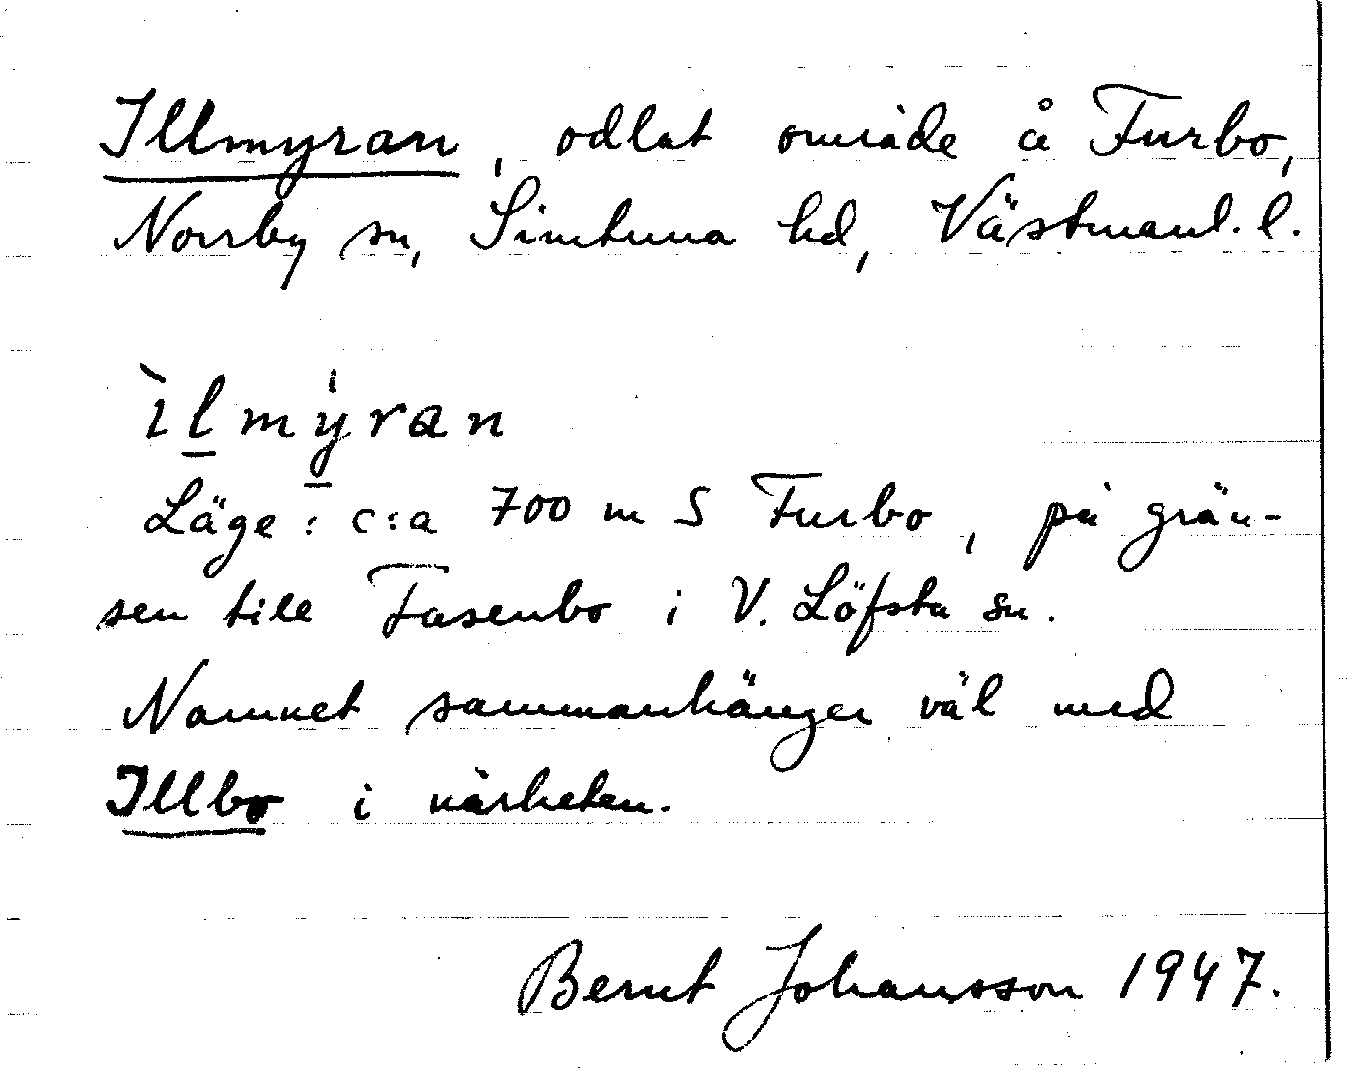 Illmyran, odlat område å Furbo,
Norrby sn, Simtuna hd, Västmanl. l.
ìlmýran
Läge: c:a 700 m S Furbo, på grän-
sen till Fasenbo i V. Löfsta sn.
Namnet sammanhänger väl med
Illbo i närheten.
Bernt Johansson 1947.